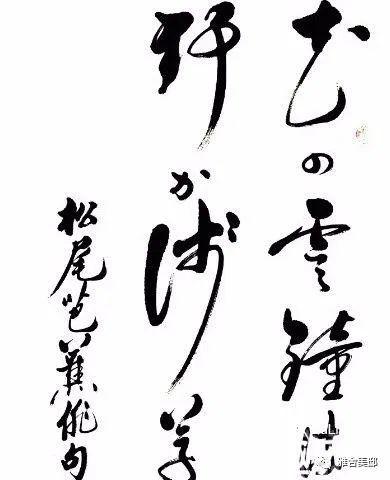 花の雲鐘は
野か浅草
松尾芭蕉俳句
雅舍美邸